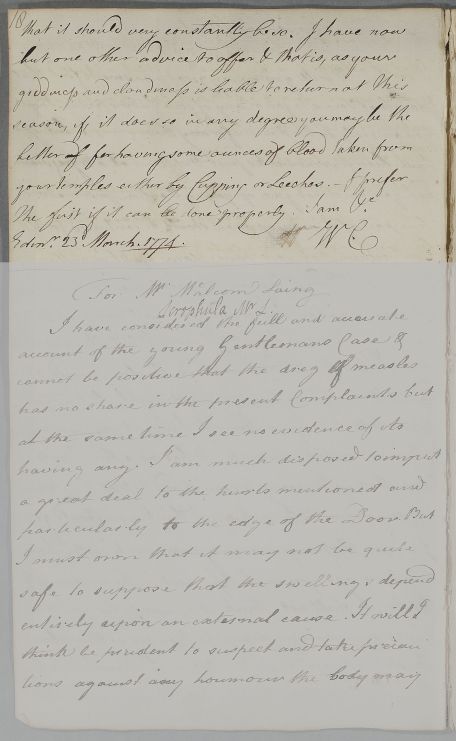 18
that it should very constantly be so. I have now
but one other advice to offer & that is, as your
giddiness and cloudiness is liable to return at this
season, if it does so in any degree you may be the
better for having some ounces of blood taken from
your temples either by Cupping or Leeches. – I prefer
the first if it can be done properly. I am &c
Edinr. 23d March. 1774. WC
For Mr. Malcom Laing
Scrophula Mr L.
I have considered the full and accurate
account of the young Gentlemans Case &
cannot be positive that the dreg of measles
has no share in the present Complaints but
at the same time I see no evidence of its
having any. I am much disposed to imput
a great deal to the hurts mentioned and
particularly to the edge of the Door. But
I must own that it may not be quite
safe to suppose that the swellings depend
entirely upon an external cause. It will I
think be prudent to suspect and take précau
tions against any houmour the body may